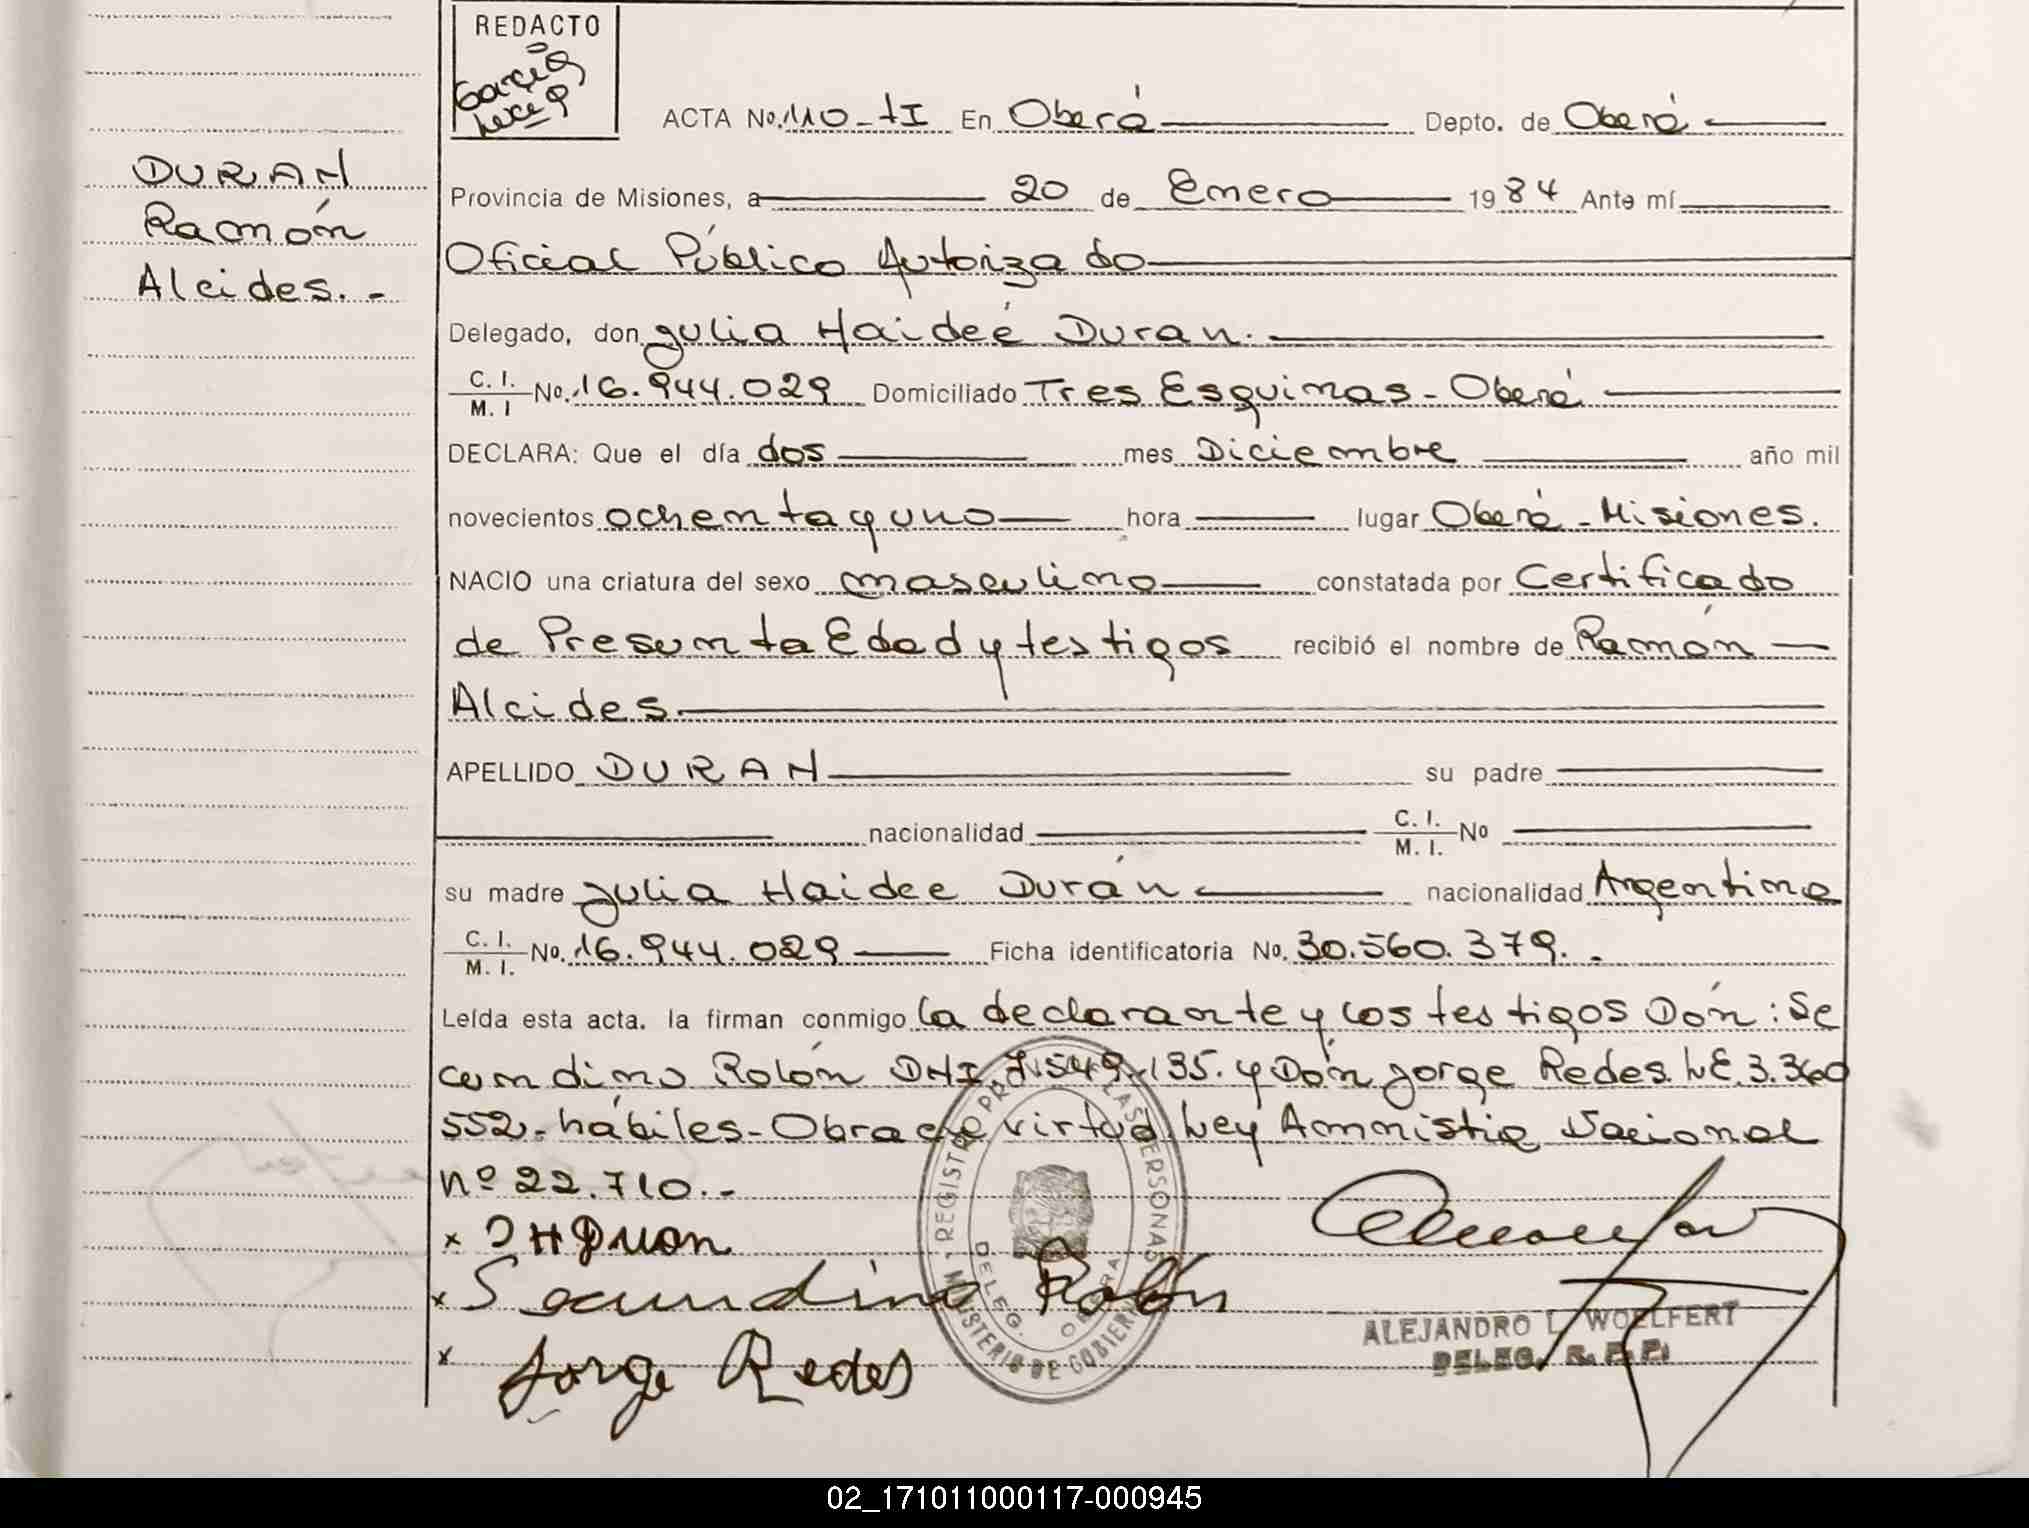 REDACTO
García
ACTA No. 110-tI En Oberá Depto. de Oberá
DURAN
Ramón
Alcides.-
Provincia de Misiones, a 20 de Enero 1984 Ante mí
Oficial Público Autorizado
Delegado, don Julia Haideé Duran.
C. I. / M. I No. 16.944.029 Domiciliado Tres Esquinas - Oberá
DECLARA: Que el día dos mes Diciembre año mil
novecientos ochenta y uno hora lugar Oberá - Misiones.
NACIO una criatura del sexo masculino constatada por Certificado
de Presunta Edad y testigos recibió el nombre de Ramón
Alcides.
APELLIDO DURAN su padre
nacionalidad C. I. / M. I. No
su madre Julia Haidee Durán nacionalidad Argentina
C. I. / M. I. No. 16.944.029 Ficha identificatoria No. 30.560.379.-
Leída esta acta, la firman conmigo la declarante y los testigos Dón: Se
cundino Rolón DNI 7.549.135. y Dón Jorge Redes. LE. 3.360
552.- hábiles - Obra en virtud Ley Amnistia Nacional
nº 22.710.-
x JHDuran
x Secundino Rolón
x Jorge Redes
REGISTRO PR LAS PERSONAS
MINISTERIO DE GOBIERNO
DELEG. OBERA
ALEJANDRO L. WOELFERT
DELEG. R. P. P.
02_171011000117-000945